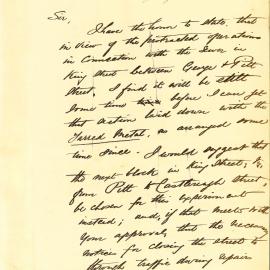 Sir,
I have the honor to state, that
in view of the protracted operations
in connection with the Sewer in
King Street between George & Pitt
Street, I find it will be still
some time before I can get
that section laid down with the
Tarred Metal, as arranged some
time since. I would suggest that
the next block in King Street, viz,
from Pitt to Castlereagh Street,
be chosen for this experiment
instead; and, if that meets with
your approval, that the necessary
notice for closing the street to
through traffic during repairs